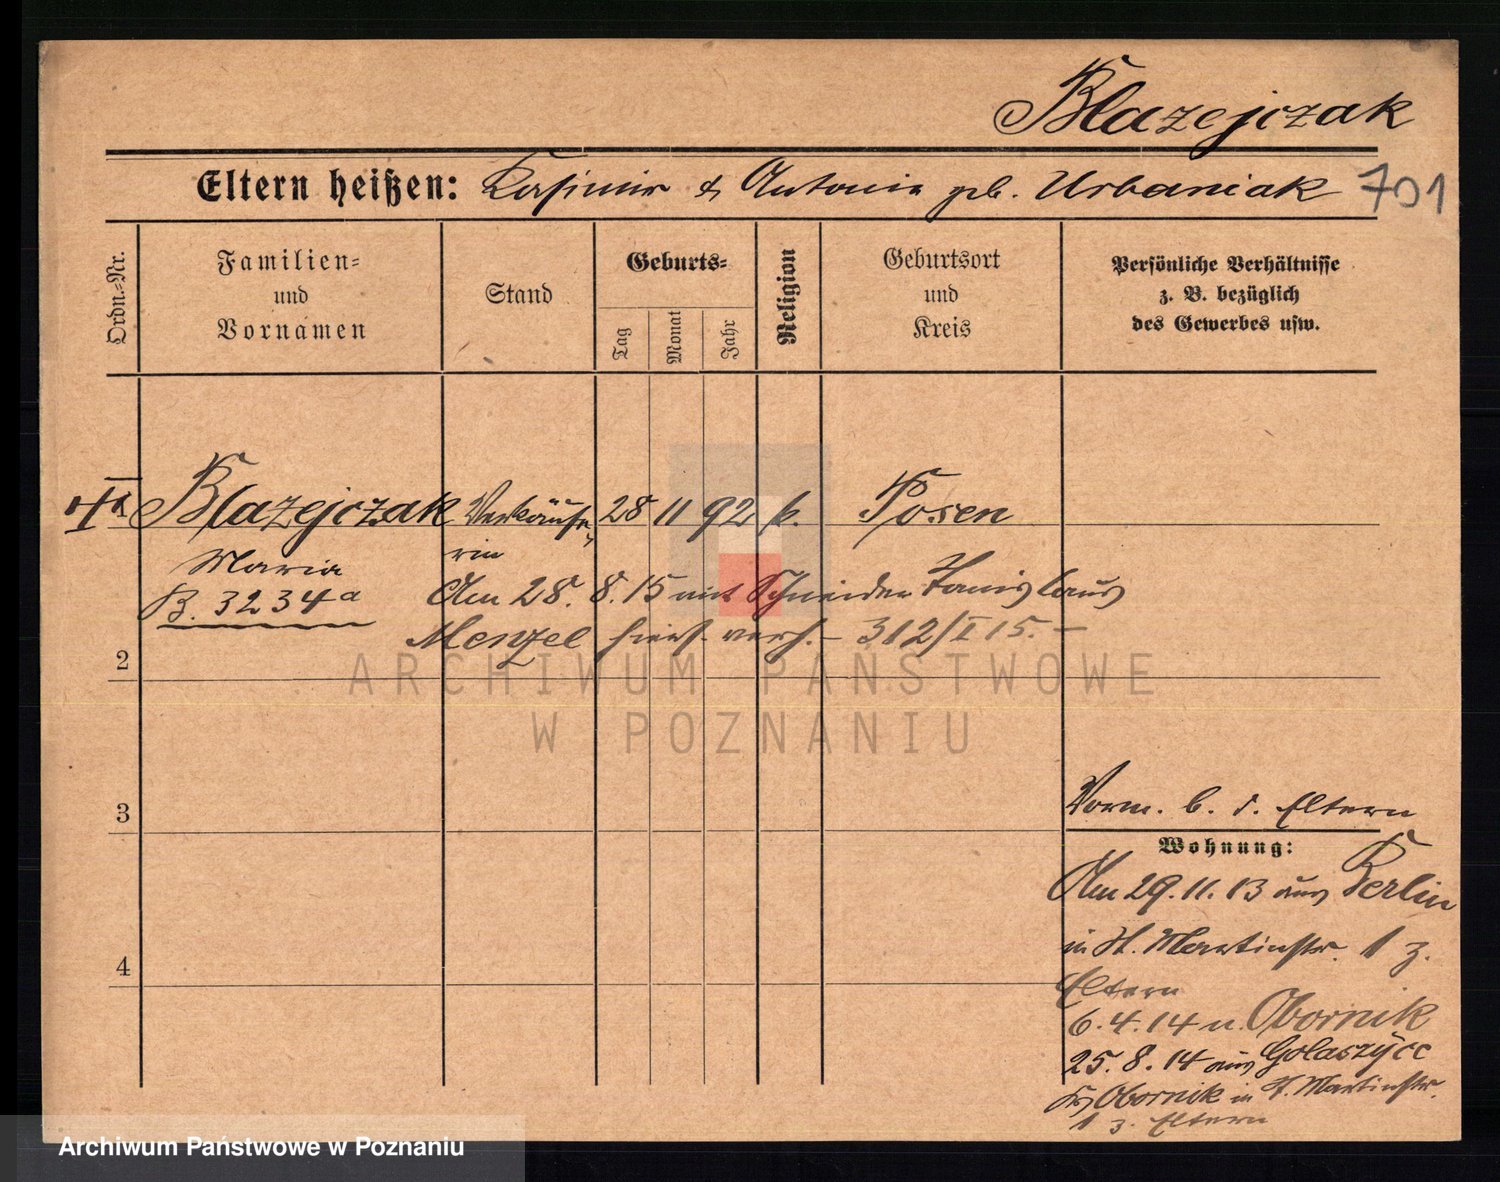 Blazejczak
Eltern heißen: Kasimir & Antonie geb. Urbaniak 701
Ordn.=Nr.
Familien=
und
Vornamen
Stand
Geburts=
Tag
Monat
Jahr
Religion
Geburtsort
und
Kreis
Persönliche Verhältnisse
z. B. bezüglich
des Gewerbes usw.
Blazejczak Verkäufe= 28 11 92 k. Posen
rin
Maria
B. 3234a
Am 28. 8. 15 mit Schneider Stanislaus
Menzel hiers. verh. – 312/I 15. –
2
3
4
Vorm. b. d. Eltern
Wohnung:
Am 29. 11. 13 aus Berlin
in St. Martinstr. 1 z.
Eltern
6. 4. 14 n. Obornik
25. 8. 14 aus Golaszyce
Kr. Obornik in St. Martinstr.
1 z. Eltern
ARCHIWUM PAŃSTWOWE
W POZNANIU
Archiwum Państwowe w Poznaniu